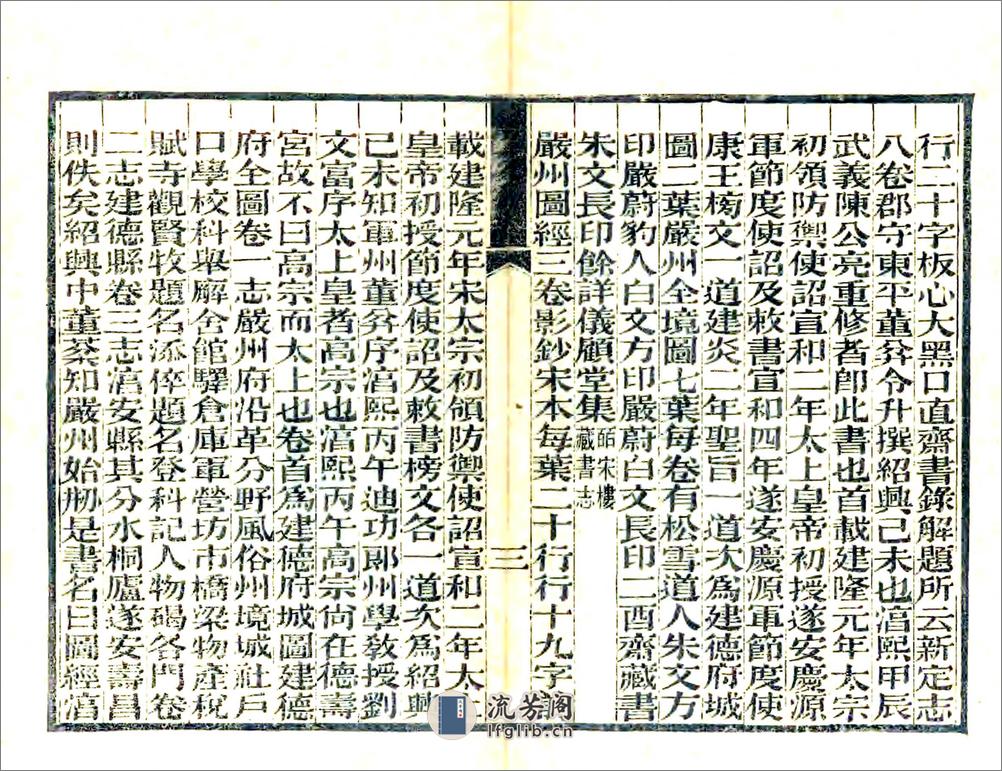 行二十字板心大黑口直齋書錄解題所云新定志
八卷郡守東平董弅令升撰紹興己未也淳熙甲辰
武義陳公亮重修者卽此書也首載建隆元年太宗
初領防禦使詔宣和二年太上皇帝初授遂安慶源
軍節度使詔及敕書宣和四年遂安慶源軍節度使
康王榜文一道建炎二年聖旨一道次爲建德府城
圖二葉嚴州全境圖七葉每卷有松雪道人朱文方
印嚴蔚豹人白文方印嚴蔚白文長印二酉齋藏書
朱文長印餘詳儀顧堂集皕宋樓藏書志
嚴州圖經三卷影鈔宋本每葉二十行行十九字首
三
載建隆元年宋太宗初領防禦使詔宣和二年太上
皇帝初授節度使詔及敕書榜文各一道次爲紹興
己未知軍州董弅序淳熙丙午迪功郎州學敎授劉
文富序太上皇者高宗也淳熙丙午高宗尙在德壽
宮故不曰高宗而太上也卷首爲建德府城圖建德
府全圖卷一志嚴州府沿革分野風俗州境城社戶
口學校科舉廨舍館驛倉庫軍營坊市橋梁物產稅
賦寺觀賢牧題名添倅題名登科記人物碣各門卷
二志建德縣卷三志淳安縣其分水桐廬遂安壽昌
則佚矣紹興中董棻知嚴州始刱是書名曰圖經淳
流芳阁
lfglib.cn